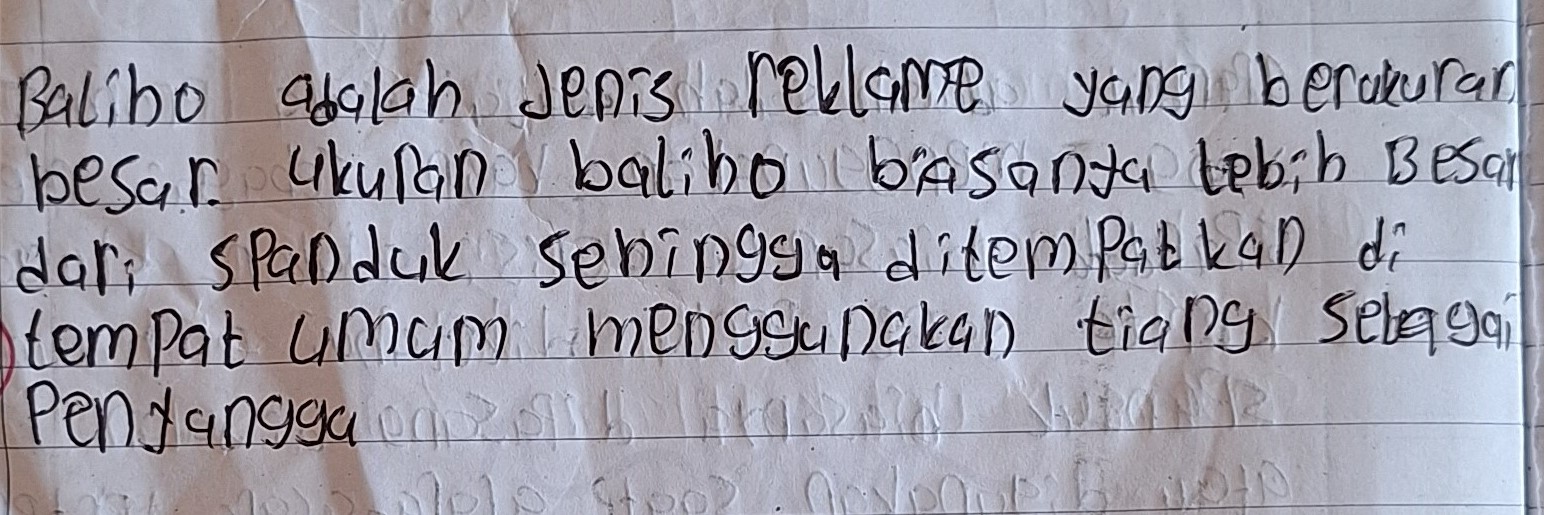 Balibo adalah Jenis reklame yang berukuran
besar. ukuran baliho biasanya lebih Besar
dari spanduk sehingga ditempatkan di
tempat umum menggunakan tiang sebagai
Penyangga